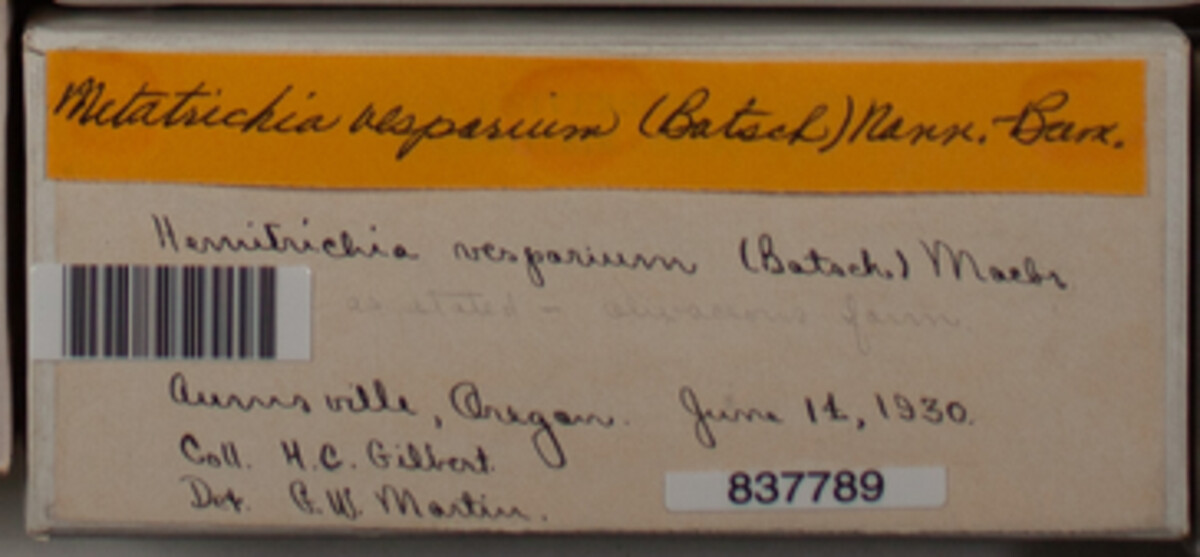 Metatrichia vesparium (Batsch) Nann.-Brem.
Hemitrichia vesparium (Batsch.) Macbr
as stated - olivaceous form.
Aumsville, Oregon. June 14, 1930.
Coll. H.C. Gilbert.
Det. G.W. Martin.
837789